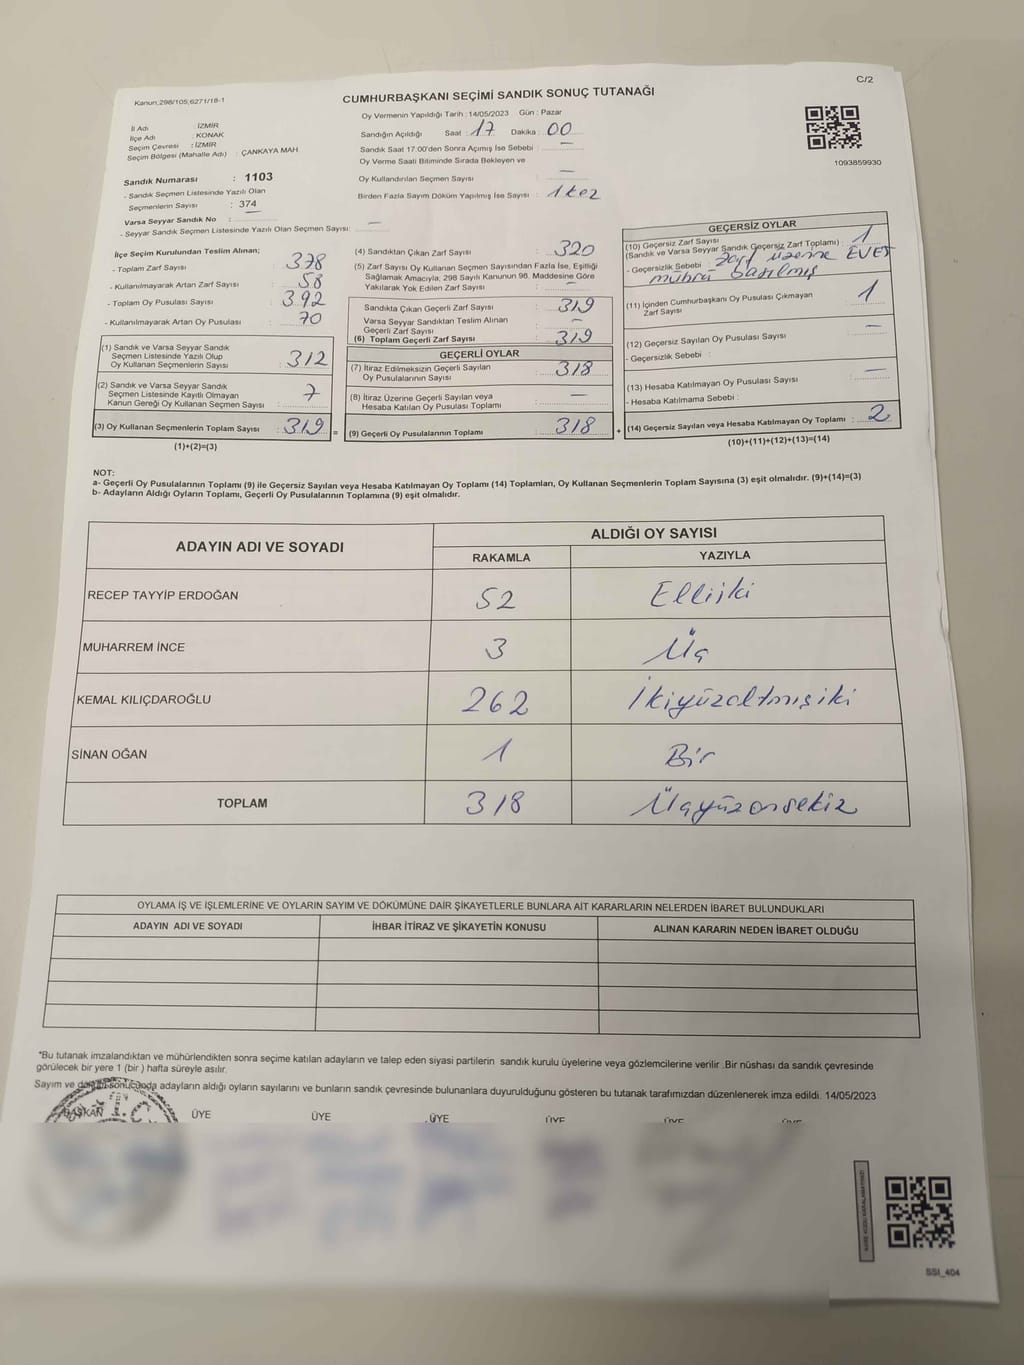 C/2
Kanun,298/105,6271/18-1
CUMHURBAŞKANI SEÇİMİ SANDIK SONUÇ TUTANAĞI
1093859930
İl Adı : İZMİR
İlçe Adı : KONAK
Seçim Çevresi : İZMİR
Seçim Bölgesi (Mahalle Adı) : ÇANKAYA MAH.
Sandık Numarası : 1103
- Sandık Seçmen Listesinde Yazılı Olan
Seçmenlerin Sayısı : 374
Varsa Seyyar Sandık No :
- Seyyar Sandık Seçmen Listesinde Yazılı Olan Seçmen Sayısı: —
Oy Vermenin Yapıldığı Tarih : 14/05/2023 Gün : Pazar
Sandığın Açıldığı Saat : 17 Dakika : 00
Sandık Saat 17:00'den Sonra Açımış İse Sebebi : —
Oy Verme Saati Bitiminde Sırada Bekleyen ve
Oy Kullandırılan Seçmen Sayısı : —
Birden Fazla Sayım Döküm Yapılmış İse Sayısı : 1 kez
İlçe Seçim Kurulundan Teslim Alınan;
- Toplam Zarf Sayısı : 378
- Kullanılmayarak Artan Zarf Sayısı : 58
- Toplam Oy Pusulası Sayısı : 392
- Kullanılmayarak Artan Oy Pusulası : 70
(1) Sandık ve Varsa Seyyar Sandık
Seçmen Listesinde Yazılı Olup
Oy Kullanan Seçmenlerin Sayısı : 312
(2) Sandık ve Varsa Seyyar Sandık
Seçmen Listesinde Kayıtlı Olmayan
Kanun Gereği Oy Kullanan Seçmen Sayısı : 7
(3) Oy Kullanan Seçmenlerin Toplam Sayısı : 319 =
(1)+(2)=(3)
(4) Sandıktan Çıkan Zarf Sayısı : 320
(5) Zarf Sayısı Oy Kullanan Seçmen Sayısından Fazla İse, Eşitliği
Sağlamak Amacıyla, 298 Sayılı Kanunun 98. Maddesine Göre
Yakılarak Yok Edilen Zarf Sayısı : —
Sandıkta Çıkan Geçerli Zarf Sayısı : 319
Varsa Seyyar Sandıktan Teslim Alınan
Geçerli Zarf Sayısı : —
(6) Toplam Geçerli Zarf Sayısı : 319
GEÇERLİ OYLAR
(7) İtiraz Edilmeksizin Geçerli Sayılan
Oy Pusulalarının Sayısı : 318
(8) İtiraz Üzerine Geçerli Sayılan veya
Hesaba Katılan Oy Pusulası Toplamı : —
(9) Geçerli Oy Pusulalarının Toplamı : 318 +
GEÇERSİZ OYLAR
(10) Geçersiz Zarf Sayısı
(Sandık ve Varsa Seyyar Sandık Geçersiz Zarf Toplamı) : 1
- Geçersizlik Sebebi : zarf üzerine EVET
mührü basılmış
(11) İçinden Cumhurbaşkanı Oy Pusulası Çıkmayan
Zarf Sayısı : 1
(12) Geçersiz Sayılan Oy Pusulası Sayısı : —
- Geçersizlik Sebebi :
(13) Hesaba Katılmayan Oy Pusulası Sayısı : —
- Hesaba Katılmama Sebebi :
(14) Geçersiz Sayılan veya Hesaba Katılmayan Oy Toplamı : 2
(10)+(11)+(12)+(13)=(14)
NOT:
a- Geçerli Oy Pusulalarının Toplamı (9) ile Geçersiz Sayılan veya Hesaba Katılmayan Oy Toplamı (14) Toplamları, Oy Kullanan Seçmenlerin Toplam Sayısına (3) eşit olmalıdır. (9)+(14)=(3)
b- Adayların Aldığı Oyların Toplamı, Geçerli Oy Pusulalarının Toplamına (9) eşit olmalıdır.
ADAYIN ADI VE SOYADI ALDIĞI OY SAYISI
RAKAMLA YAZIYLA
RECEP TAYYİP ERDOĞAN 52 Elliiki
MUHARREM İNCE 3 Üç
KEMAL KILIÇDAROĞLU 262 İkiyüzaltmışiki
SİNAN OĞAN 1 Bir
TOPLAM 318 Üçyüzonsekiz
OYLAMA İŞ VE İŞLEMLERİNE VE OYLARIN SAYIM VE DÖKÜMÜNE DAİR ŞİKAYETLERLE BUNLARA AİT KARARLARIN NELERDEN İBARET BULUNDUKLARI
ADAYIN ADI VE SOYADI İHBAR İTİRAZ VE ŞİKAYETİN KONUSU ALINAN KARARIN NEDEN İBARET OLDUĞU
*Bu tutanak imzalandıktan ve mühürlendikten sonra seçime katılan adayların ve talep eden siyasi partilerin sandık kurulu üyelerine veya gözlemcilerine verilir .Bir nüshası da sandık çevresinde
görülecek bir yere 1 (bir ) hafta süreyle asılır.
Sayım ve döküm sonucunda adayların aldığı oyların sayılarını ve bunların sandık çevresinde bulunanlara duyurulduğunu gösteren bu tutanak tarafımızdan düzenlenerek imza edildi. 14/05/2023
BAŞKAN T.C. ÜYE ÜYE ÜYE ÜYE ÜYE ÜYE
SSI_404